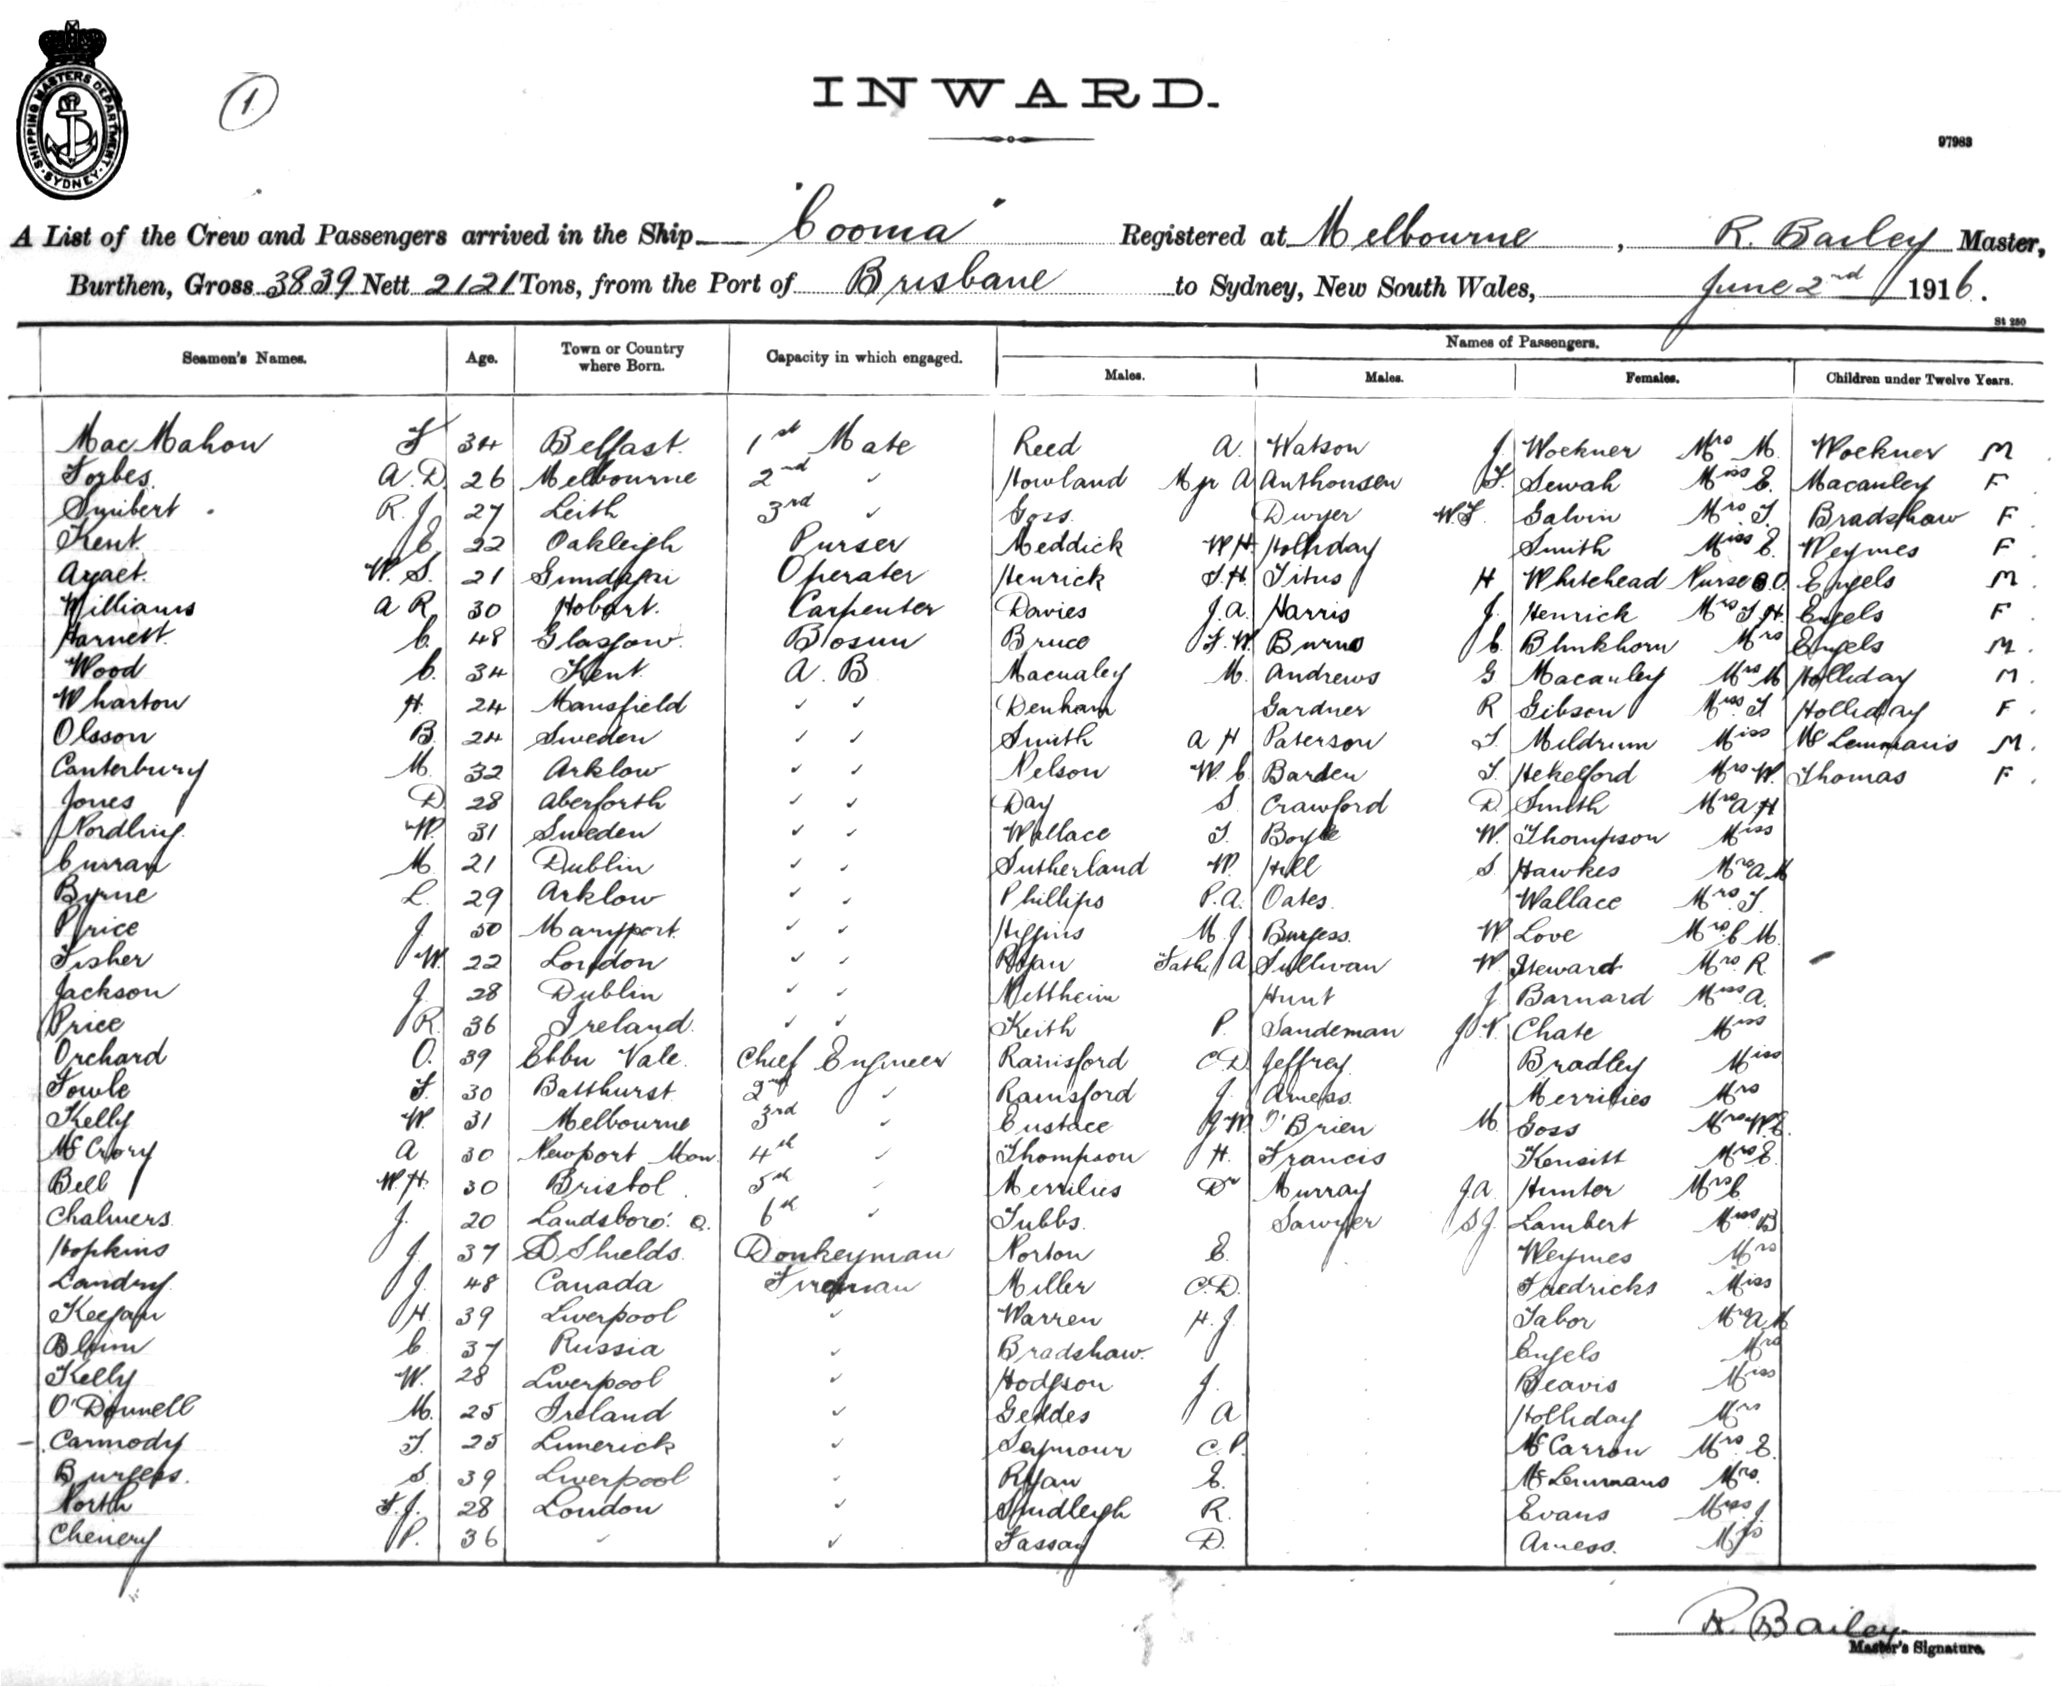 SHIPPING MASTERS DEPARTMENT
SYDNEY
1
INWARD.
97983
A List of the Crew and Passengers arrived in the Ship "Cooma" Registered at Melbourne, R. Bailey Master,
Burthen, Gross 3839 Nett 2121 Tons, from the Port of Brisbane to Sydney, New South Wales, June 2nd 1916.
St 250
Names of Passengers.
Seamen's Names. Age. Town or Country where Born. Capacity in which engaged. Males. Males. Females. Children under Twelve Years.
MacMahon F 34 Belfast. 1st Mate Reed A. Watson J. Wockner Mrs M. Wockner M
Forbes. A.D. 26 Melbourne 2nd " Howland A Anthonsen F. Sewah Miss E. Macauley F
Smibert R.J. 27 Leith 3rd " Goss. Dwyer W.F. Galvin Mrs T. Bradshaw F.
Kent. C. 22 Oakleigh Purser Meddick W.H. Holliday Smith Miss E. Weymes F.
W.S. 21 Gundagai Operater Henrick T.H. Titus H Whitehead Nurse O. Engels M.
Williams A R 30 Hobart. Carpenter Davies J.A. Harris J. Henrick Mrs T.H. Engels F.
Harnett. C. 48 Glasgow. Blosun Bruce F.W. Burns C. Blinkhorn Mrs Engels M.
Wood C. 34 Kent. A.B. Macualey M. Andrews G Macauley Mrs M Holliday M.
Wharton H. 24 Mansfield " " Denham Gardner R Gibson Miss T Holliday F.
Olsson B. 24 Sweden " " Smith A H Paterson T. Mildrum Miss McLemmans M.
Canterbury M. 32 Arklow " " Nelson W.C. Barden T. Hekelford Mrs W. Thomas F.
Jones D. 28 Aberforth " " Day S. Crawford D. Smith Mrs A H
Nordling. W. 31 Sweden " " Wallace T. Boyle W. Thompson Miss
Curran M. 21 Dublin " " Sutherland W. Hill S. Hawkes Mrs A.M
Byrne L. 29 Arklow " " Phillips P.A. Oates. Wallace Mrs. T.
Price J. 50 Maryport. " " Higgins M.J. Burgess. W Love Mrs. C.M.
Fisher W. 22 London " " Ryan Fath. A Sullivan W. Steward Mrs. R.
Jackson J. 28 Dublin " " Nettheim Hunt J. Barnard Miss A.
Price R. 36 Ireland. " " Keith P. Sandeman J.V. Chate Miss
Orchard O. 39 Ebbu Vale. Chief Engineer Rainsford C.D. Jeffrey. Bradley Miss
Fowle F. 30 Batthurst. 2nd " Rainsford J. Amess. Merrilies Mrs
Kelly W. 31 Melbourne 3rd " Eustace J.W. O'Brien M. Goss Mrs W.E.
McCrory A 30 Newport Mon. 4th " Thompson H. Francis Kensitt Mrs E.
Bell W.H. 30 Bristol. 5th " Merrilies Dr Murray J.A. Hunter Mrs C.
Chalmers J. 20 Landsboro'. Q. 6th " Tubbs. Sawyer S J. Lambert Miss B
Hopkins J. 37 S Shields. Donkeyman Norton E. Weymes Mrs
Landry. J. 48 Canada Fireman Miller C.D. Fredricks Miss
Keegan H. 39 Liverpool " Warren H.J. Tabor Mrs A.M
Blum C. 37 Russia " Bradshaw. Engels Mrs
Kelly W. 28 Liverpool " Hodgson J. Beavis Miss
O'Donnell M. 25 Ireland " Geddes A Holliday Mrs
Carmody T. 25 Limerick " Seymour C.P. McCarron Mrs. E.
Burgess. S. 39 Liverpool " Ryan E. McLemmans Mrs.
North F.J. 28 London " Studleigh R. Evans Miss J
Chenery P. 36 " " Tassay D. Amess. Mrs
R. Bailey.
Master's Signature.